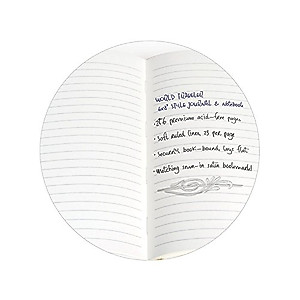 WORLD TRAVELER
STYLE JOURNAL & notebook
• 256 premium acid-free pages
• Soft ruled lines, 23 per page
• Securely book-bound, lays flat
• Matching sewn-in satin bookmark!